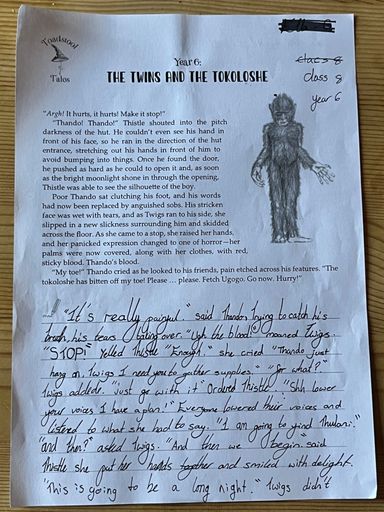 Toadstool
Talos
Year 6:
THE TWINS AND THE TOKOLOSHE
class 8
class 8
year 6
"Argh! It hurts, it hurts! Make it stop!"
"Thando! Thando!" Thistle shouted into the pitch
darkness of the hut. He couldn't even see his hand
in front of his face, so he ran in the direction of the hut
entrance, stretching out his hands in front of him to
avoid bumping into things. Once he found the door,
he pushed as hard as he could to open it and, as soon
as the bright moonlight shone in through the opening,
Thistle was able to see the silhouette of the boy.
Poor Thando sat clutching his foot, and his words
had now been replaced by anguished sobs. His stricken
face was wet with tears, and as Twigs ran to his side, she
slipped in a new slickness surrounding him and skidded
across the floor. As she came to a stop, she raised her hands,
and her panicked expression changed to one of horror—her
palms were now covered, along with her clothes, with red,
sticky blood. Thando's blood.
"My toe!" Thando cried as he looked to his friends, pain etched across his features. "The
tokoloshe has bitten off my toe! Please … please. Fetch Ugogo. Go now. Hurry!"
"It's really painful." said Thando trying to catch his
breath, his tears over. "Ugh the blood" moaned Twigs.
"STOP!" Yelled Thistle "Enough." she cried "Thando just
hang on, Twigs I need you to gather supplies." "for what?"
Twigs added. "just go with it" Ordered Thistle. "Shh lower
your voices I have a plan!" Everyone lowered their voices and
listened to what she had to say. "I am going to find Thulani."
"and then?" asked Twigs. "And then we begin." said
Thistle she put her hands together and smiled with delight.
"This is going to be a long night." Twigs didn't